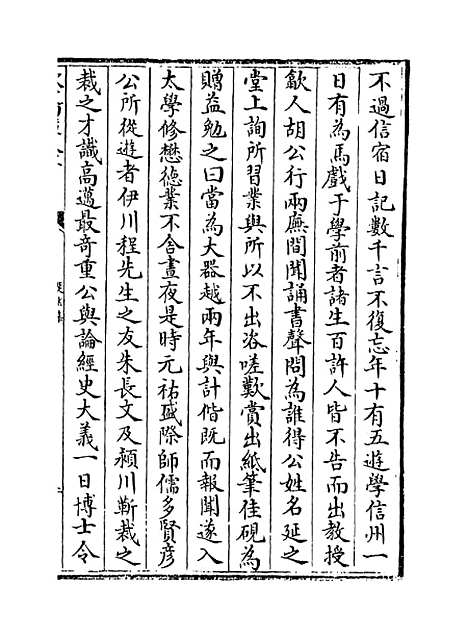 不過信宿日記數千言不復忘年十有五遊學信州一
日有為馬戲于學前者諸生百許人皆不告而出教授
歙人胡公行兩廡間聞誦書聲問為誰得公姓名延之
堂上詢所習業與所以不出洛嗟歎賞出紙筆佳硯為
贈益勉之曰當為大器越兩年與計偕既而報聞遂入
太學修懋德業不舍晝夜是時元祐盛際師儒多賢彦
公所從遊者伊川程先生之友朱長文及潁川靳裁之
裁之才識高邁最奇重公與論經史大義一日博士令